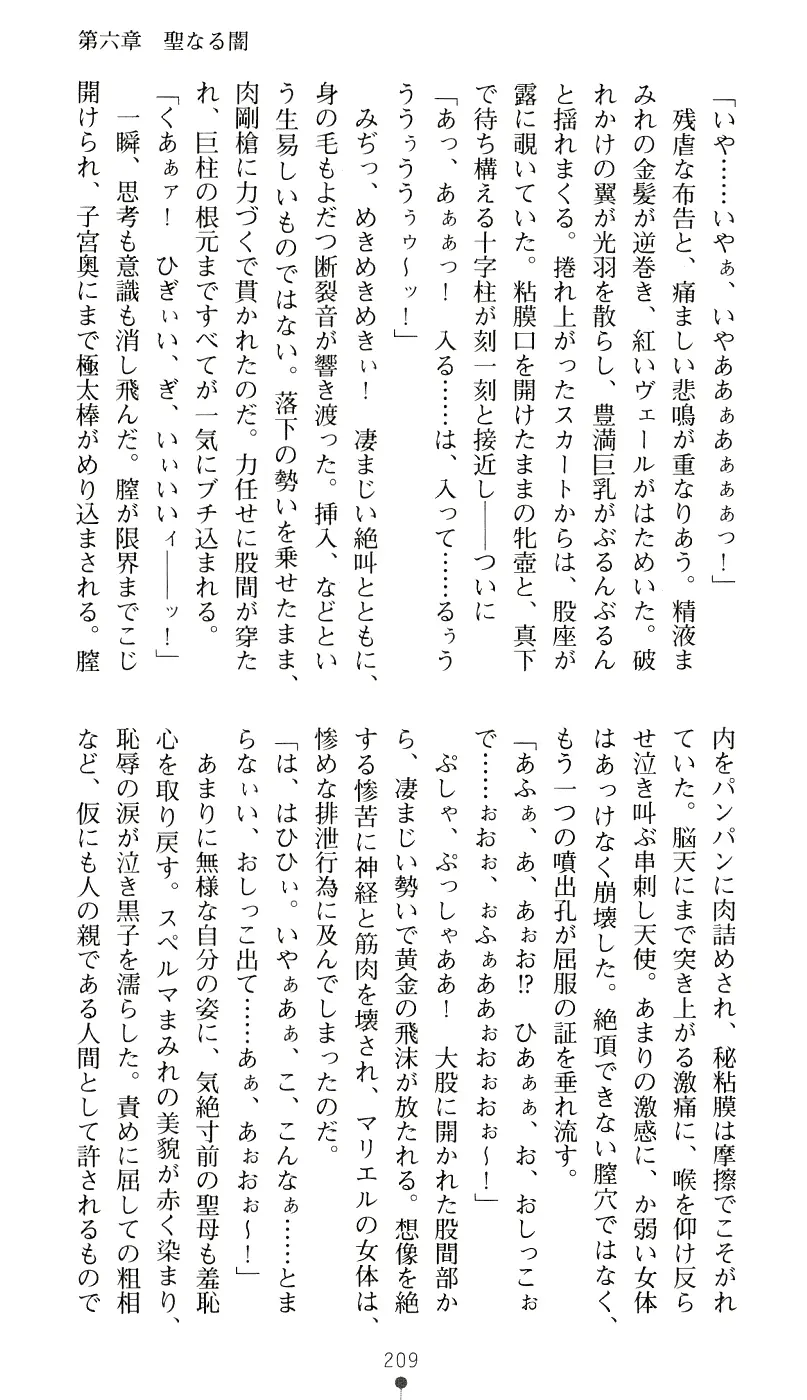 第六章　聖なる闇
「いや……いやぁ、いやああぁあぁぁぁっ！」
　残虐な布告と、痛ましい悲鳴が重なりあう。精液ま
みれの金髪が逆巻き、紅いヴェールがはためいた。破
れかけの翼が光羽を散らし、豊満巨乳がぶるんぶるん
と揺れまくる。捲れ上がったスカートからは、股座が
露に覗いていた。粘膜口を開けたままの牝壺と、真下
で待ち構える十字柱が刻一刻と接近し――ついに
「あっ、あぁぁっ！　入る……は、入って……るぅう
ううぅううぅゥ～ッ！」
　みぢっ、めきめきめきぃ！　凄まじい絶叫とともに、
身の毛もよだつ断裂音が響き渡った。挿入、などとい
う生易しいものではない。落下の勢いを乗せたまま、
肉剛槍に力づくで貫かれたのだ。力任せに股間が穿た
れ、巨柱の根元まですべてが一気にブチ込まれる。
「くあぁァ！　ひぎぃぃい、ぎ、いぃいいィ――ッ！」
　一瞬、思考も意識も消し飛んだ。膣が限界までこじ
開けられ、子宮奥にまで極太棒がめり込まされる。膣
内をパンパンに肉詰めされ、秘粘膜は摩擦でこそがれ
ていた。脳天にまで突き上がる激痛に、喉を仰け反ら
せ泣き叫ぶ串刺し天使。あまりの激感に、か弱い女体
はあっけなく崩壊した。絶頂できない膣穴ではなく、
もう一つの噴出孔が屈服の証を垂れ流す。
「あふぁ、あ、あぉお!?　ひあぁぁ、お、おしっこぉ
で……ぉおぉ、ぉふぁああぉおぉおぉ～！」
　ぷしゃ、ぷっしゃああ！　大股に開かれた股間部か
ら、凄まじい勢いで黄金の飛沫が放たれる。想像を絶
する惨苦に神経と筋肉を壊され、マリエルの女体は、
惨めな排泄行為に及んでしまったのだ。
「は、はひひぃ。いやぁあぁ、こ、こんなぁ……とま
らなぃい、おしっこ出て……あぁ、あぉおぉ～！」
　あまりに無様な自分の姿に、気絶寸前の聖母も羞恥
心を取り戻す。スペルマまみれの美貌が赤く染まり、
恥辱の涙が泣き黒子を濡らした。責めに屈しての粗相
など、仮にも人の親である人間として許されるもので
209